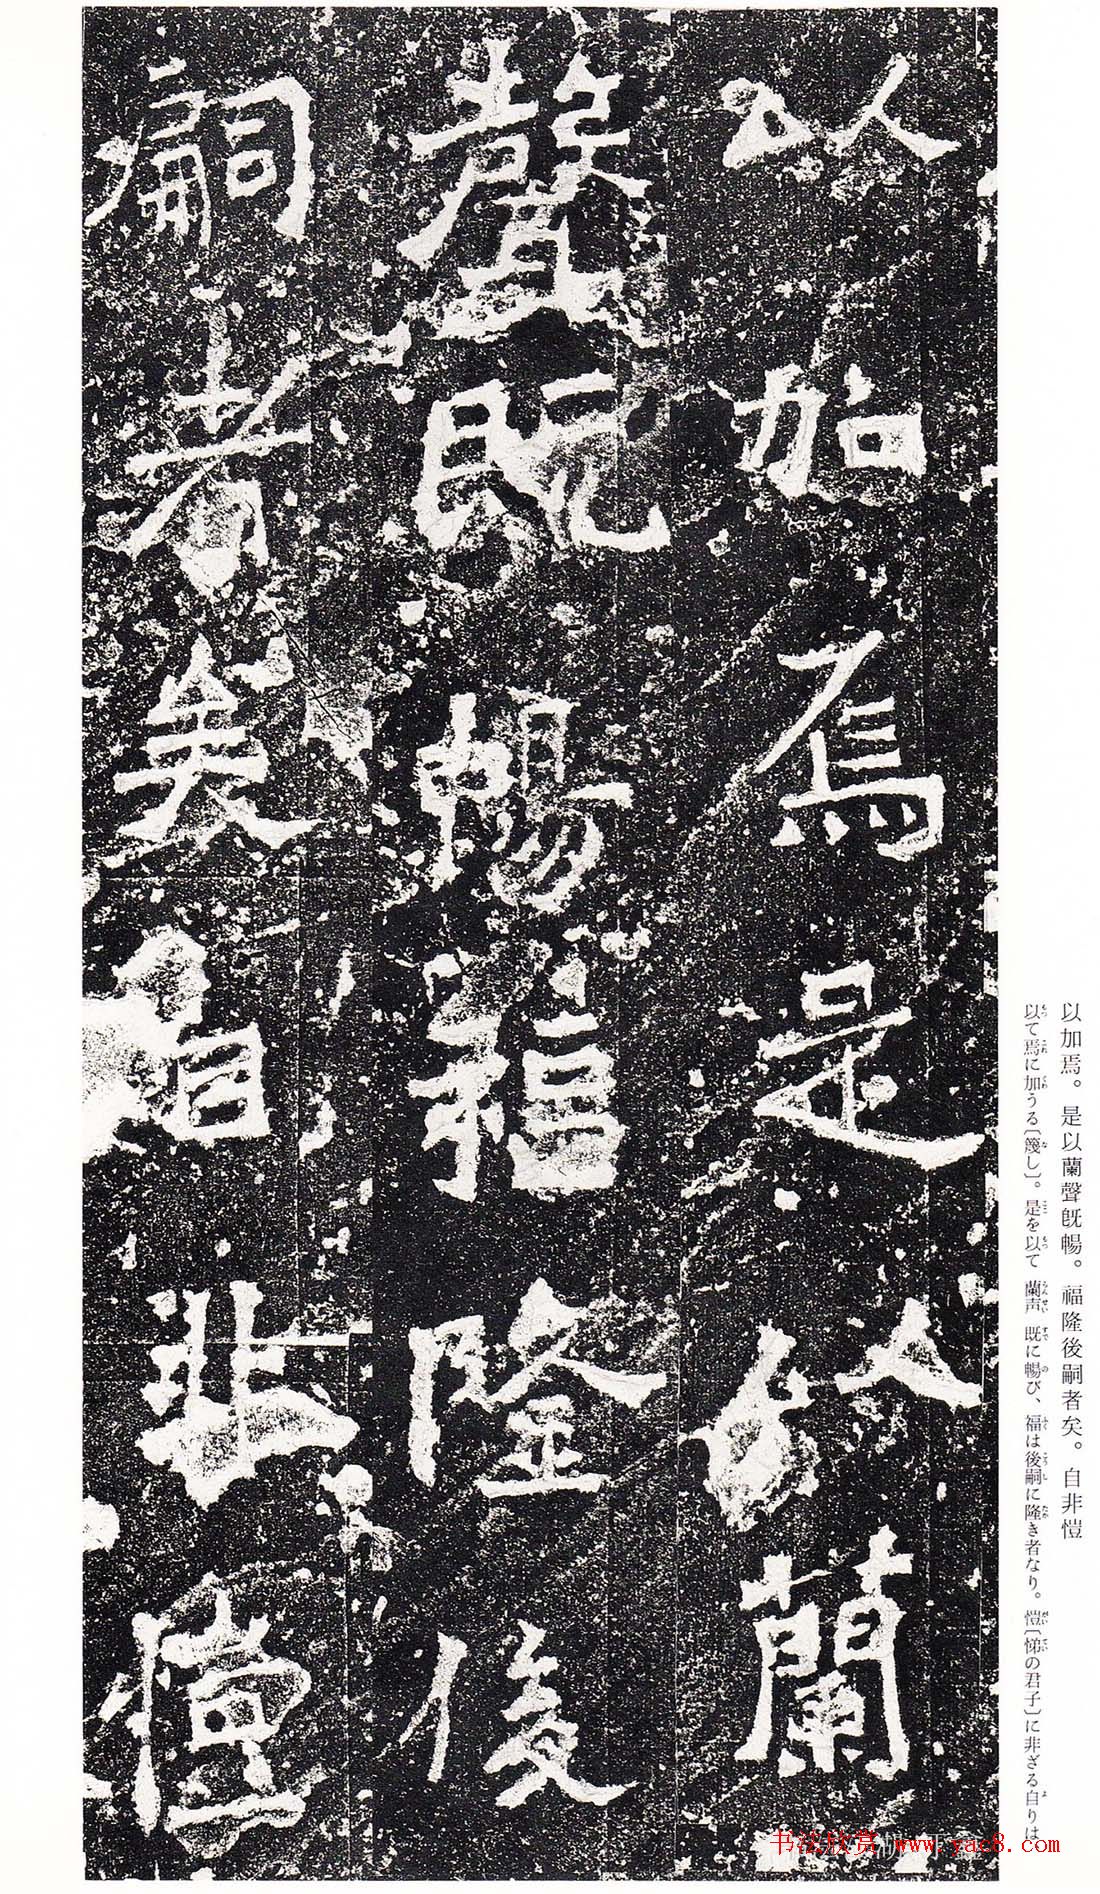 以加焉是以蘭
聲既暢福隆後
嗣者矣自非愷
以加焉。是以蘭聲既暢。福隆後嗣者矣。自非愷
以て焉に加うる〔篾し〕。是を以て 蘭声 既に暢び、福は後嗣に隆き者なり。愷〔悌の君子〕に非ざる自りは
书法欣赏 www.yac8.com